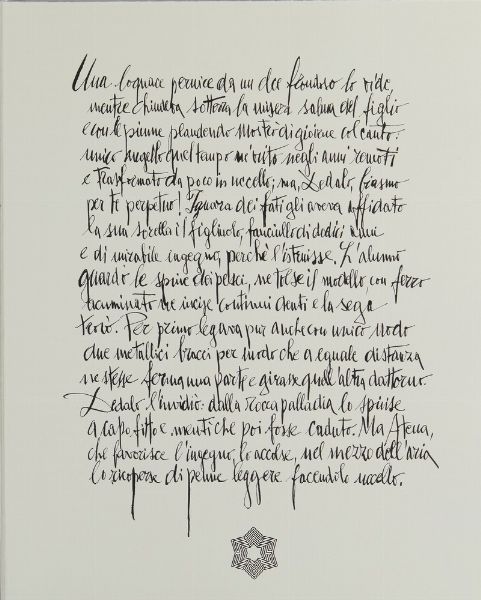 Una loquace pernice da un elce frondoso lo vide,
mentre chiudeva sotterra la misera salma del figlio
e con le piume plaudendo mostrò di gioirne col canto:
unico augello quel tempo né visto negli anni remoti
e trasformato da poco in uccello; ma, Dedalo, biasmo
per te perpetuo! Ignara dei fati gli aveva affidato
la sua sorella il figliuolo, fanciullo di dodici anni
e di mirabile ingegno, perchè l'istruisse. L'alunno
guardò le spine dei pesci, ne tolse il modello con ferro
acuminato ne incise continui denti e la sega
trovò. Per primo legava pur anche con unico nodo
due metallici bracci per modo che a eguale distanza
ne stesse ferma una parte e girasse quell'altra dattorno.
Dedalo l'invidiò: dalla rocca palladia lo spinse
a capofitto e mentì che poi fosse caduto. Ma Atena,
che favorisce l'ingegno, lo accolse, nel mezzo dell'aria
lo ricoperse di penne leggere facendolo uccello.